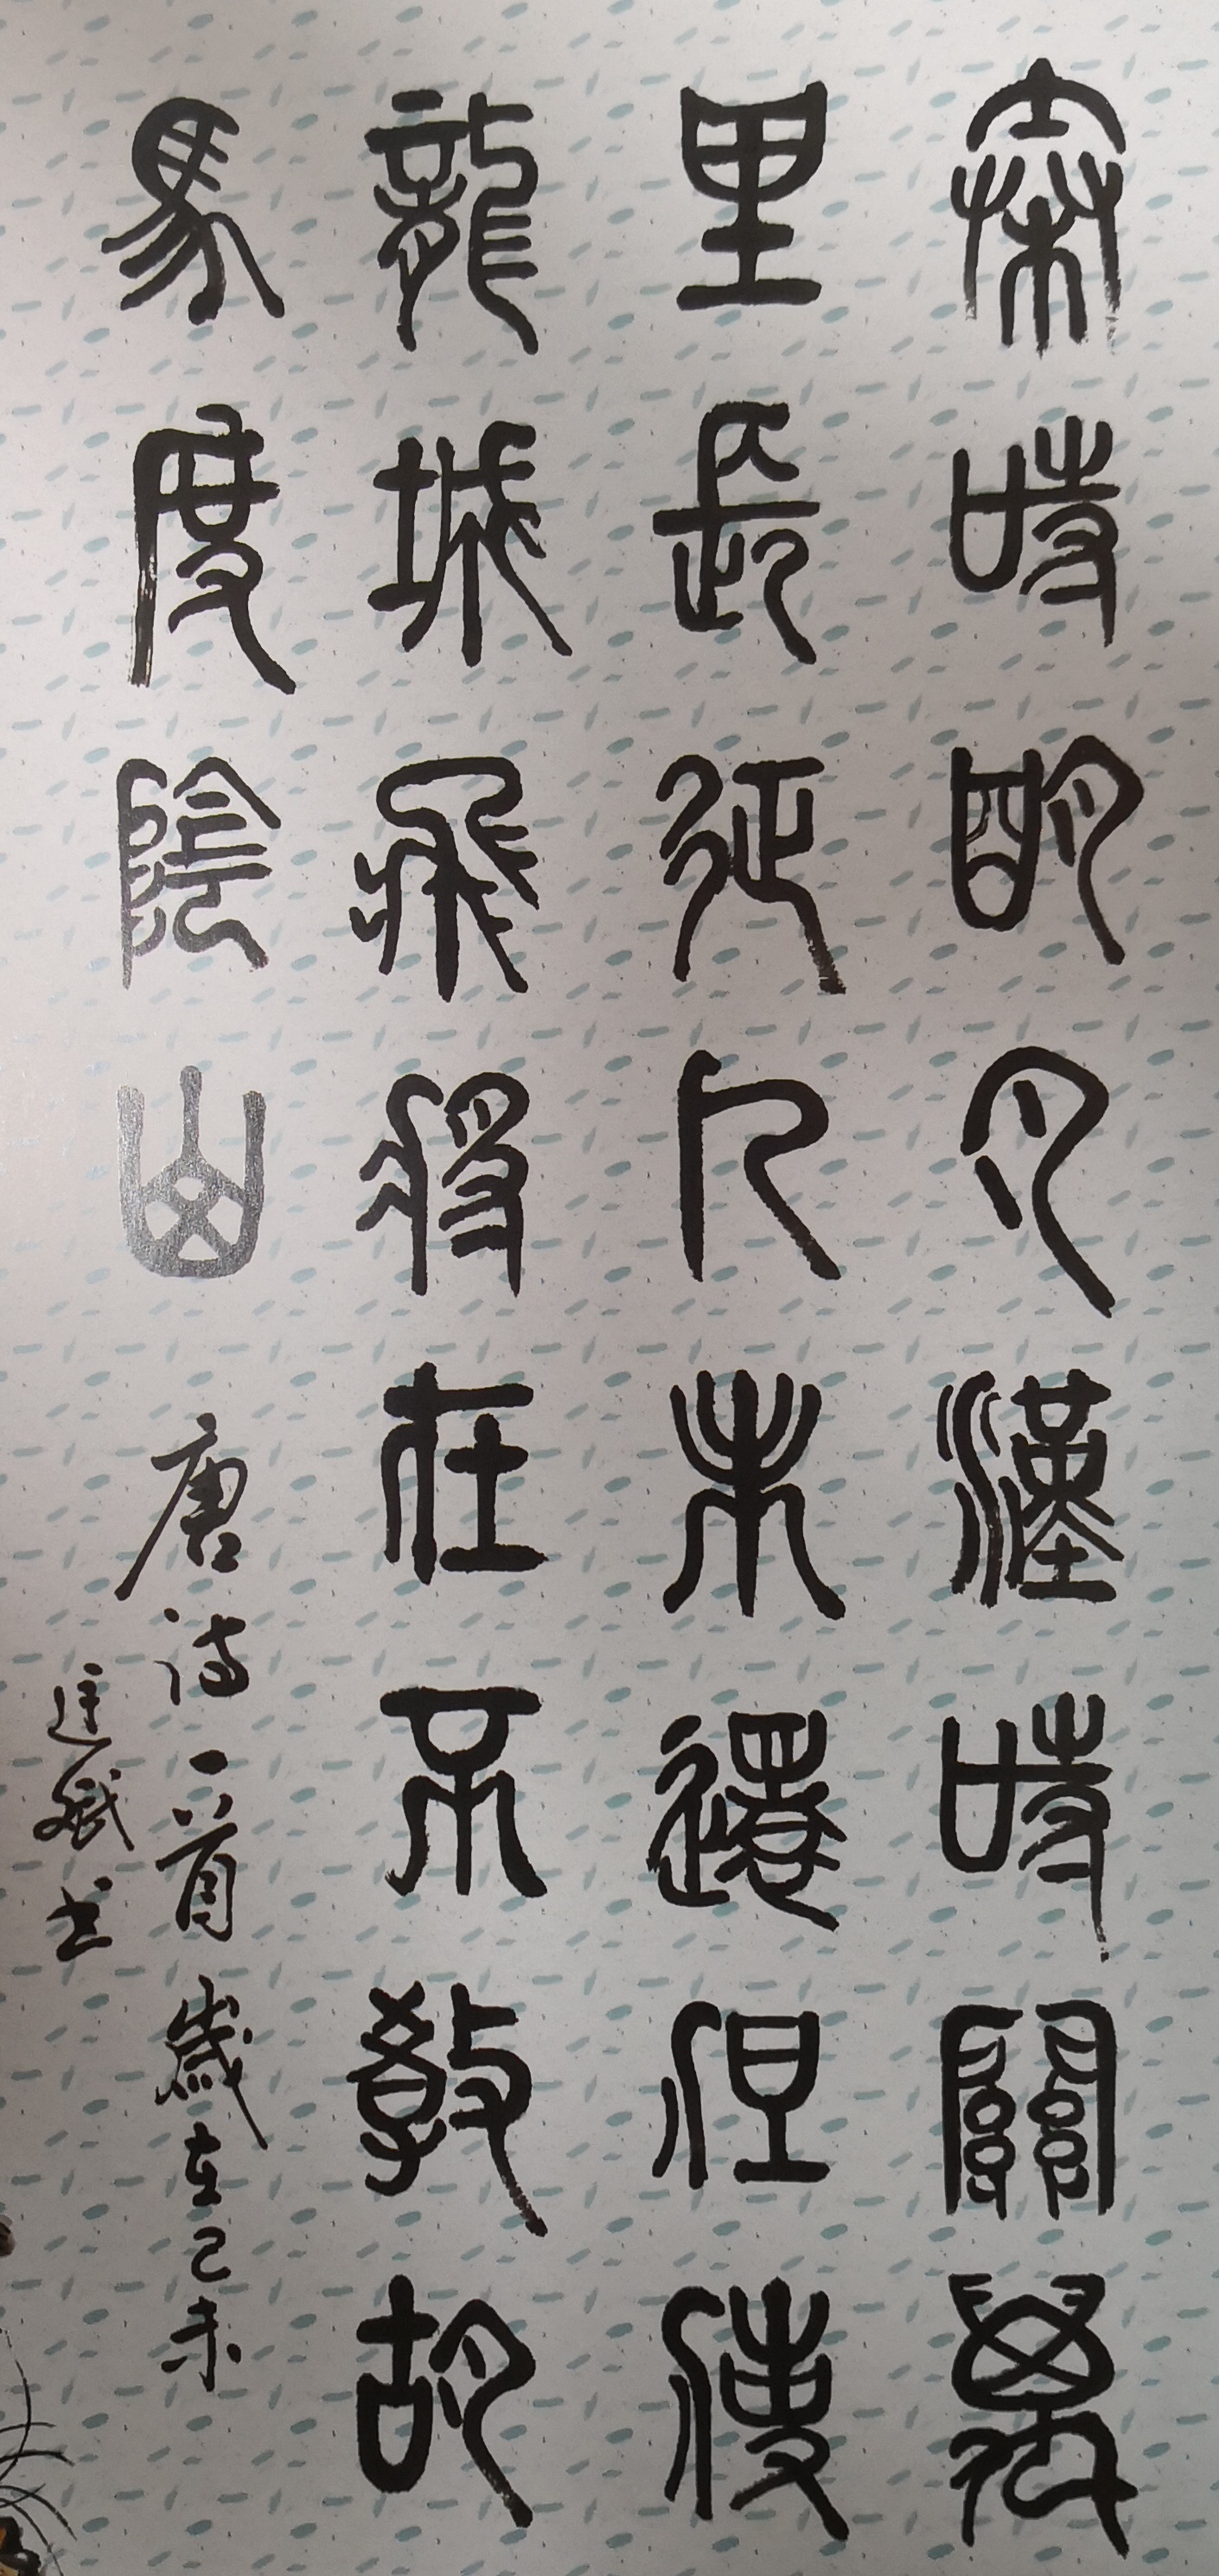 秦時明月漢時關萬
里長征人未還但使
龍城飛將在不教胡
馬度陰山 唐诗一首歲在己未
廷斌书